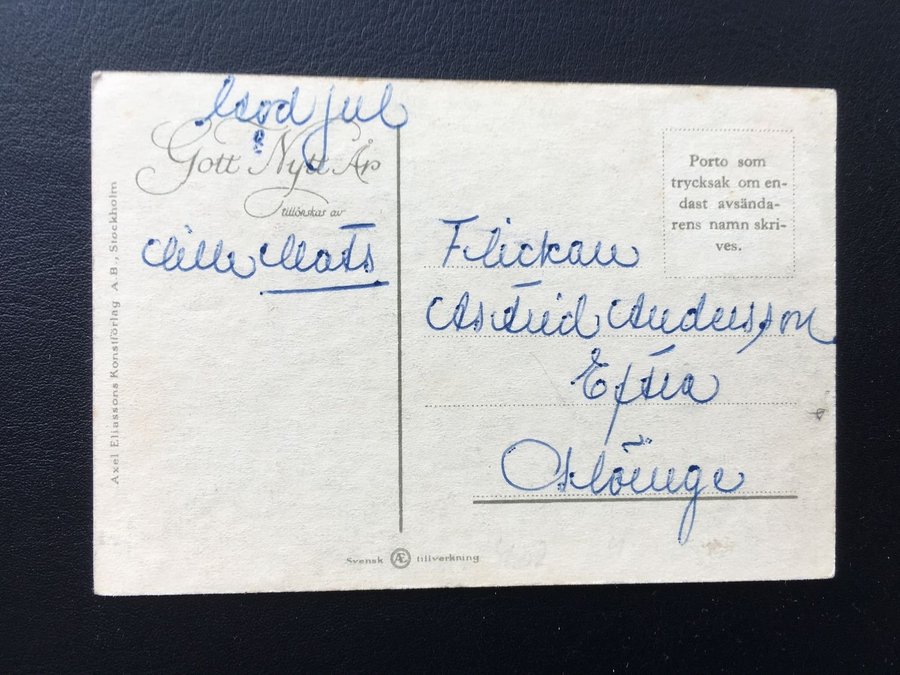 God jul
&
Gott Nytt År
tillönskas av
Lille Mats
Axel Eliassons Konstförlag A.B., Stockholm
Porto som
trycksak om en-
dast avsända-
rens namn skri-
ves.
Flickan
Astrid Andersson
Eftra
Slöinge
Svensk Æ tillverkning